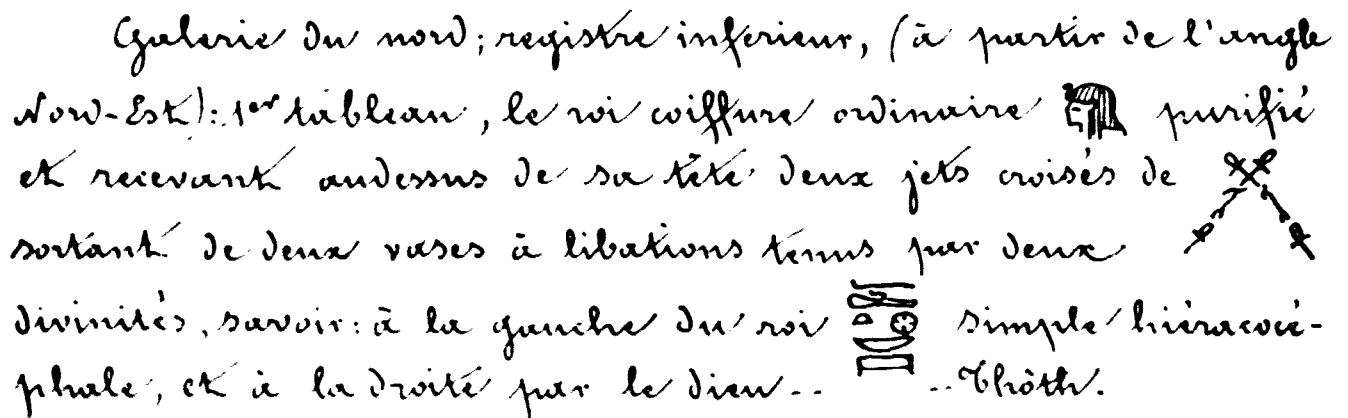 Galerie du nord; registre inferieur, (à partir de l'angle
Nord-Est): 1er tableau, le roi coiffure ordinaire purifié
et recevant audessus de sa tête deux jets croisés de
sortant de deux vases à libations tenus par deux
divinités, savoir: à la gauche du roi simple hiéracocé-
phale, et à la droite par le dieu.. ..Thôth.